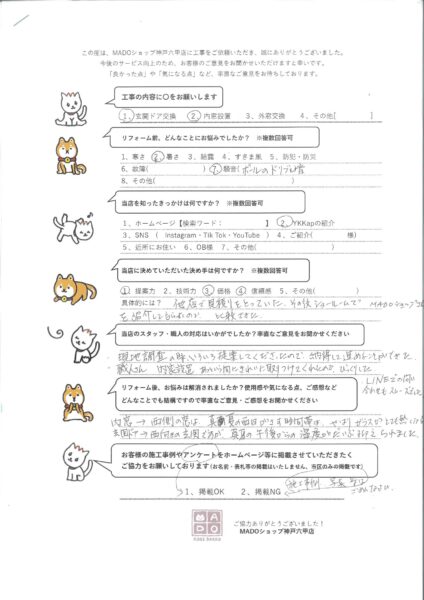 この度は、MADOショップ神戸六甲店に工事をご依頼いただき、誠にありがとうございました。
今後のサービス向上のため、お客様のご意見をお聞かせいただけますと幸いです。
「良かった点」や「気になる点」など、率直なご意見をお待ちしております。
工事の内容に〇をお願いします
1、玄関ドア交換 2、内窓設置 3、外窓交換 4、その他[ ]
リフォーム前、どんなことにお悩みでしたか? ※複数回答可
1、寒さ 2、暑さ 3、結露 4、すきま風 5、防犯・防災
6、故障( ) 7、騒音( ボールのドリブル音
8、その他( )
当店を知ったきっかけは何ですか? ※複数回答可
1、ホームページ【検索ワード: 】 2、YKKapの紹介
3、SNS ( Instagram・Tik Tok・YouTube ) 4、ご紹介( 様)
5、近所にお住い 6、OB様 7、その他( )
当店に決めていただいた決め手は何ですか? ※複数回答可
1、提案力 2、技術力 3、価格 4、信頼感 5、その他( )
具体的には? 他店で見積りをとっていた。その後ショールームで MADOショップ
を紹介して 比較できた。
当店のスタッフ・職人の対応はいかがでしたか?率直なご意見をお聞かせください
・現地調査の時、いろいろ提案してくださったので 納得して進めることができた。
・職人さん 内窓設置 あっという間にきれいに取り付けて
リフォーム後、お悩みは解消されましたか?使用感や気になる点、ご感想など
どんなことでも結構ですので率直なご感想をお聞かせください
LINEでの
スムーズ
内窓→西側の窓は、真夏の西日がさす時間帯は、やはりガラスが
玄関ドア→西向きの玄関ですが、真夏の午後からの温度が
お客様の施工事例やアンケートをホームページ等に掲載させていただきたく
ご協力をお願いしております(お名前・表札等の掲載はいたしません、市区のみの掲載です)
1、掲載OK 2、掲載NG
施工事例 写真
ごめんなさい。
MADO
ご協力ありがとうございました!
MADOショップ神戸六甲店